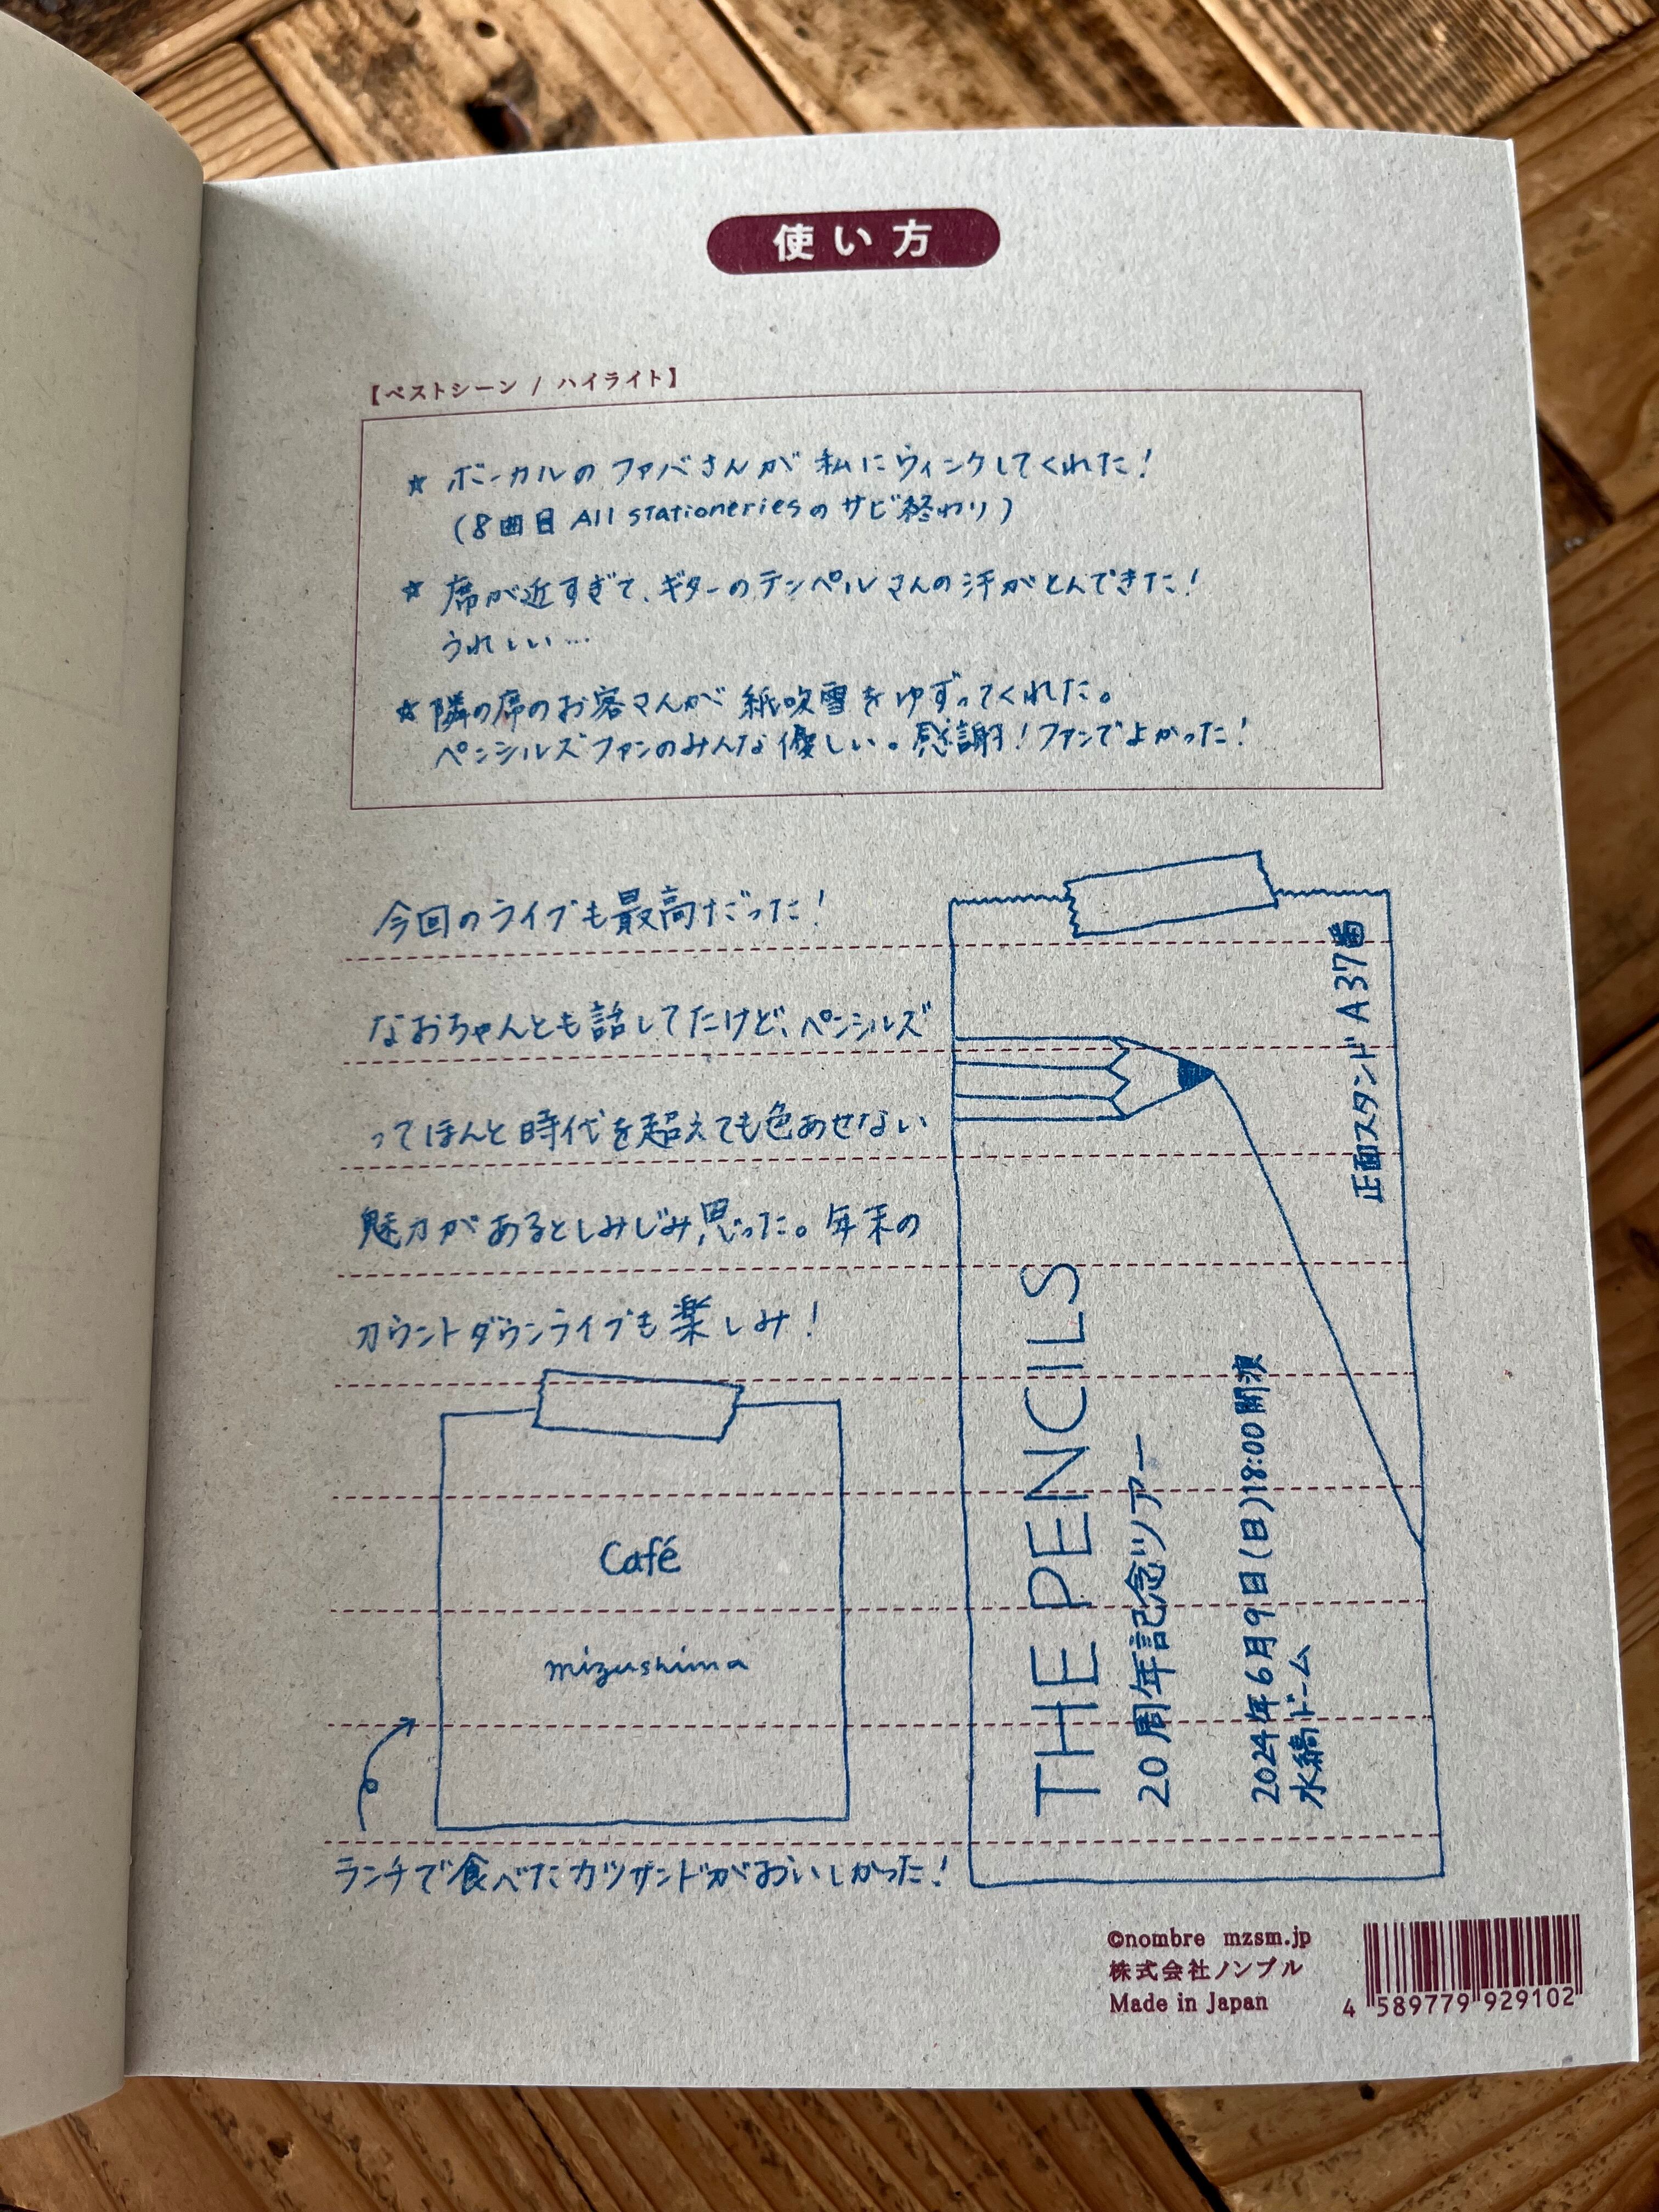 使い方
【ベストシーン / ハイライト】
☆ ボーカルのファバさんが私にウィンクしてくれた！
（8曲目 All stationeriesのサビ終わり）
☆ 席が近すぎて、ギターのテンペルさんの汗がとんできた！
うれしい…
☆ 隣の席のお客さんが紙吹雪をゆずってくれた。
ペンシルズファンのみんな優しい。感謝！ファンでよかった！
今回のライブも最高だった！
なおちゃんとも話してたけど、ペンシルズ
ってほんと時代を超えても色あせない
魅力があるとしみじみ思った。年末の
カウントダウンライブも楽しみ！
Café
mizushima
ランチで食べたカツサンドがおいしかった！
THE PENCILS
20周年記念ツアー
2024年6月9日(日)18:00開演
水縞ドーム
正面スタンド A37番
©nombre mzsm.jp
株式会社ノンブル
Made in Japan
4 589779 929102